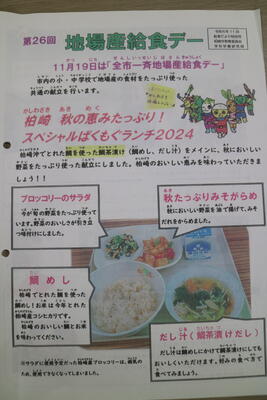 第26回
地場産給食デー
11月19日は「全市一斉地場産給食デー」
市内の小・中学校で地場産の食材をたっぷり使った
共通の献立を行います。
柏崎 秋の恵みたっぷり!
スペシャルぱくもぐランチ2024
柏崎沖でとれた鯛を使った鯛茶漬け(鯛めし、だし汁)をメインに、秋においしい
野菜をたっぷり使った献立にしました。柏崎のおいしい秋を味わっていただき
ましょう!!
ブロッコリーのサラダ
今が旬の野菜をたっぷり使って
います。野菜のおいしさが引き立
つ味付けにしました。
秋たっぷりみそがらめ
秋においしい野菜を油で揚げて、みそ
だれをからめました。
鯛めし
柏崎でとれた鯛を使った鯛
めし!お米は今年とれた
柏崎産コシヒカリです。
柏崎のおいしい鯛とお米
を味わってください。
だし汁(鯛茶漬けだし)
だし汁は鯛めしにかけて鯛茶漬けにしても
おいしくいただけます。好みの食べ方で
食べてみましょう。
※サラダに使用予定だった柏崎産ブロッコリーは、病気の
ため、使用できなくなってしまいました。